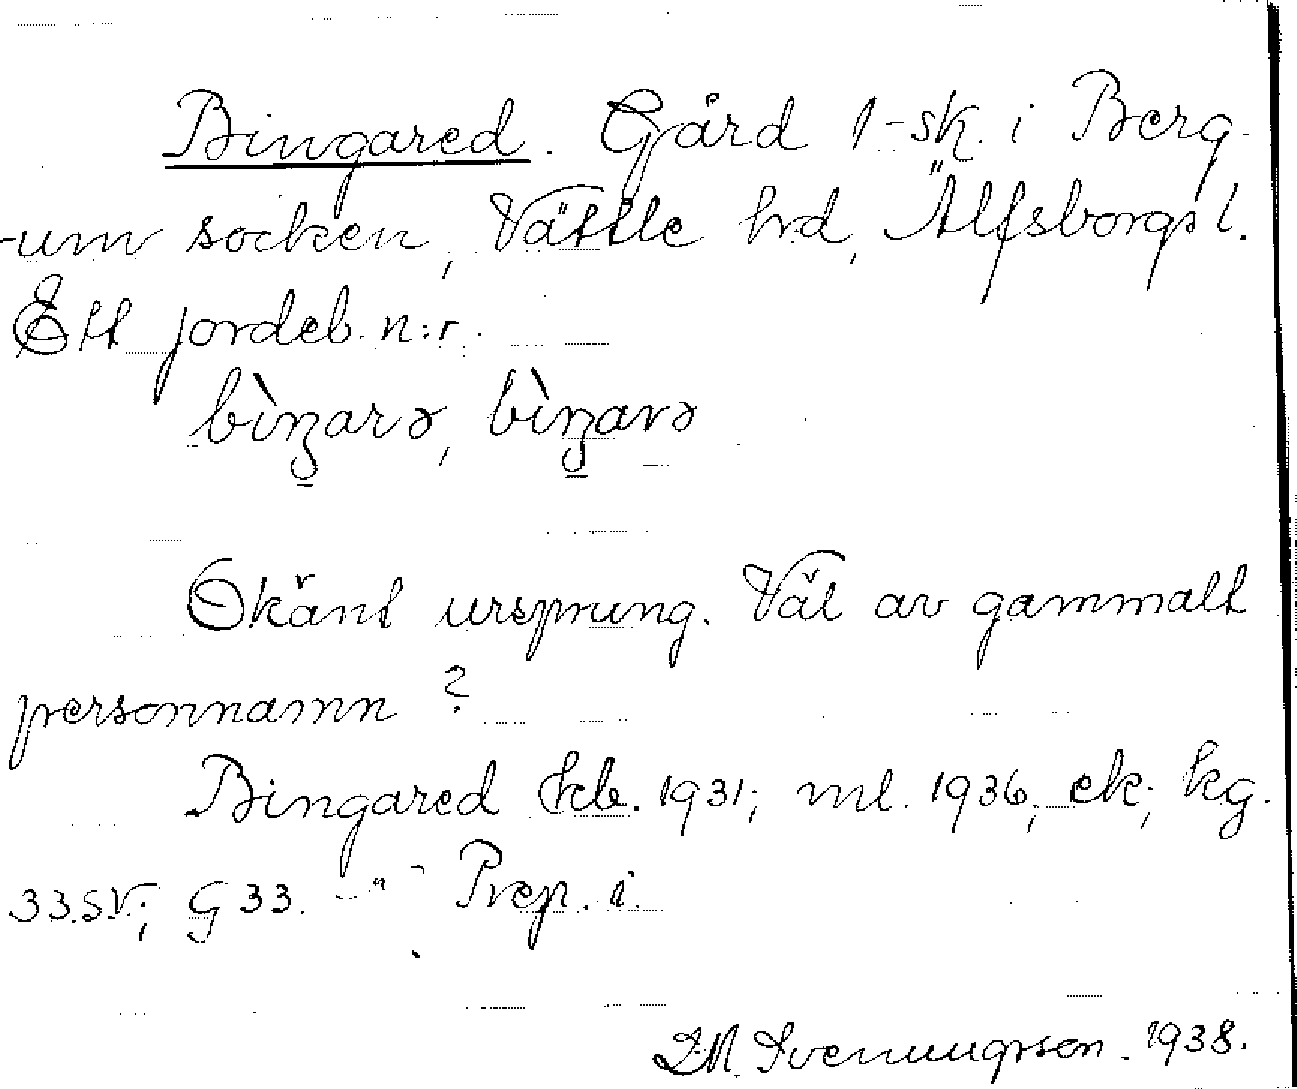 Bingared. Gård 1-sk. i Berg-
-um socken, Vättle hrd, Älfsborgs l.
Ett jordeb. n:r.
bìŋarə, bìŋarə
Okänt ursprung. Väl av gammalt
personnamn?
Bingared kb. 1931; ml. 1936; ek; kg.
33.SV; G 33. - " - Prep. i.
Svenungsson. 1938.